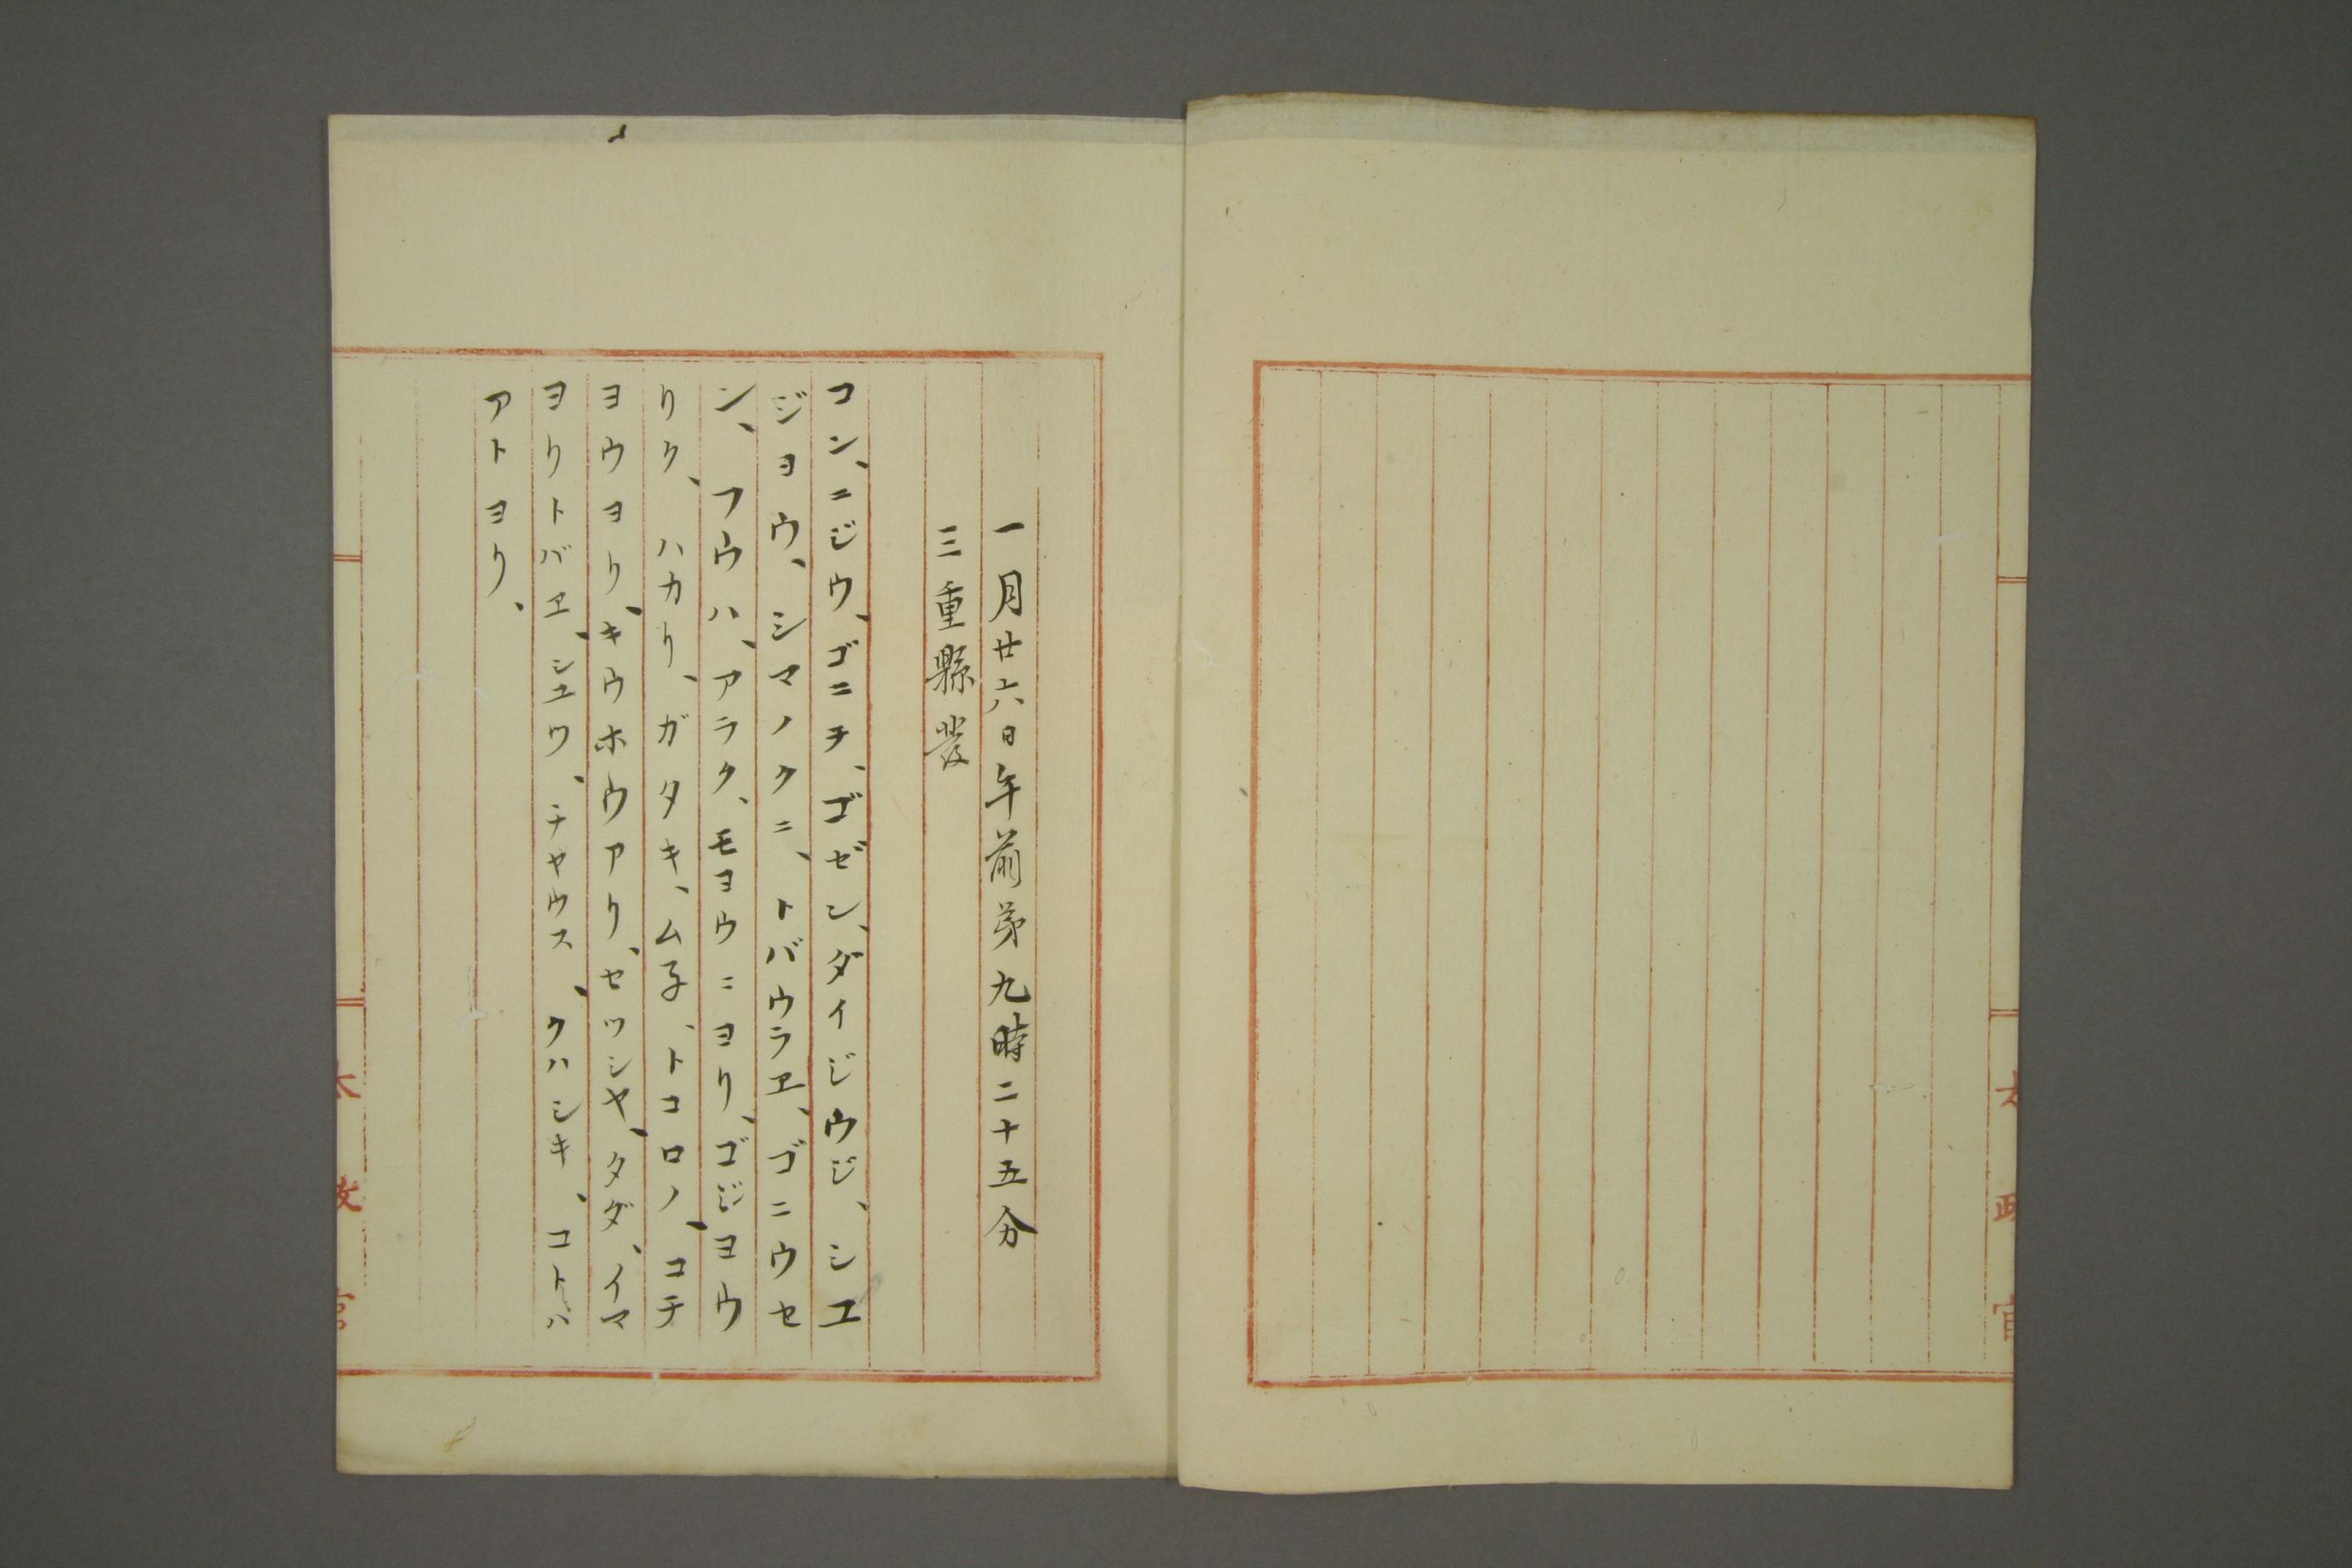 太政官
一月廿六日午前第九時二十五分
三重縣発
コン、ニジウ、ゴニチ、ゴゼン、ダイジウジ、シユ
ジヨウ、シマノクニ、トバウラヱ、ゴニウセ
ン、フウハ、アラク、モヨウニヨリ、ゴジヨウ
リク、ハカリ、ガタキ、ム子、トコロノ、コチ
ヨウヨリ、キウホウアリ、セツシヤ、タダ、イマ
ヨリトバヱ、シユツ、チヤウス、クハシキ、コトハ
アトヨリ、
太政官